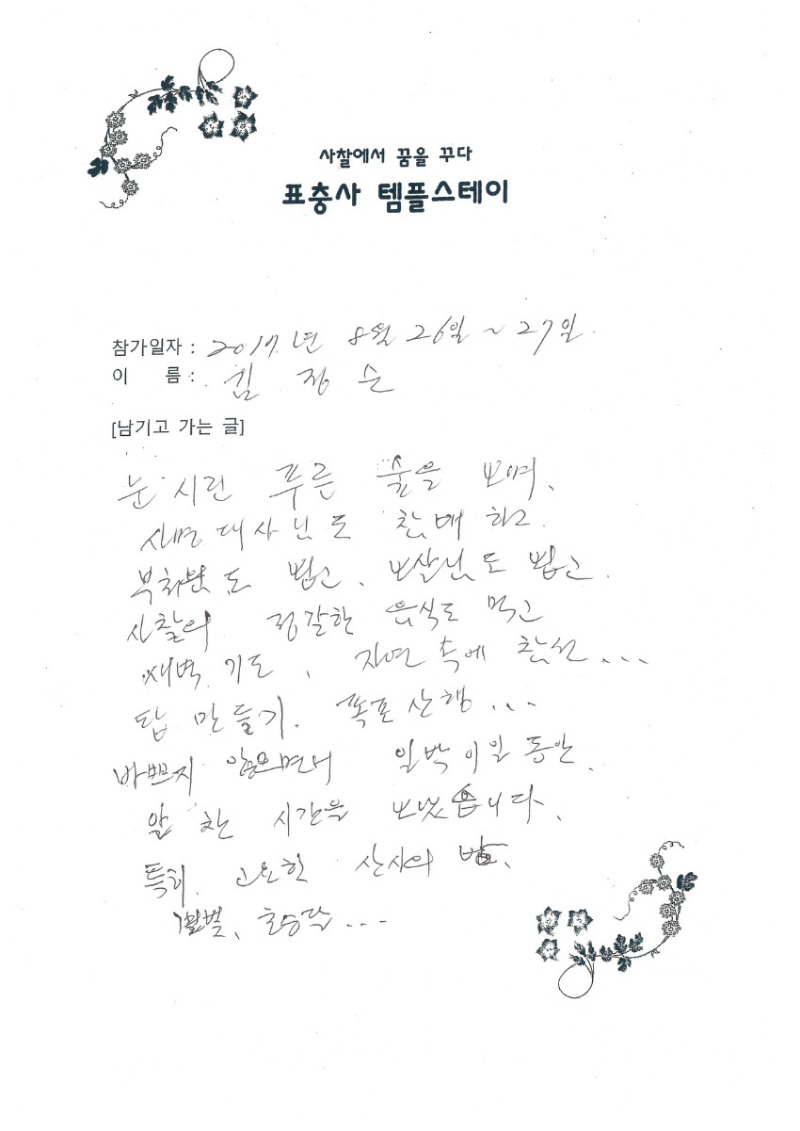 사찰에서 꿈을 꾸다
표충사 템플스테이
참가일자 : 2017년 8월 26일 ~ 27일.
이 름 : 김 정 순
[남기고 가는 글]
눈 시린 푸른 숲을 보며,
사명대사님도 참배 하고.
부처님도 뵙고, 보살님도 뵙고.
사찰의 정갈한 음식도 먹고
새벽 기도, 자연 속에 참선...
탑 만들기. 폭포 산행...
바쁘지 않으면서 일박 이일 동안.
알 찬 시간을 보냈습니다.
특히, 고요한 산사의 밤,
별, 초승달...